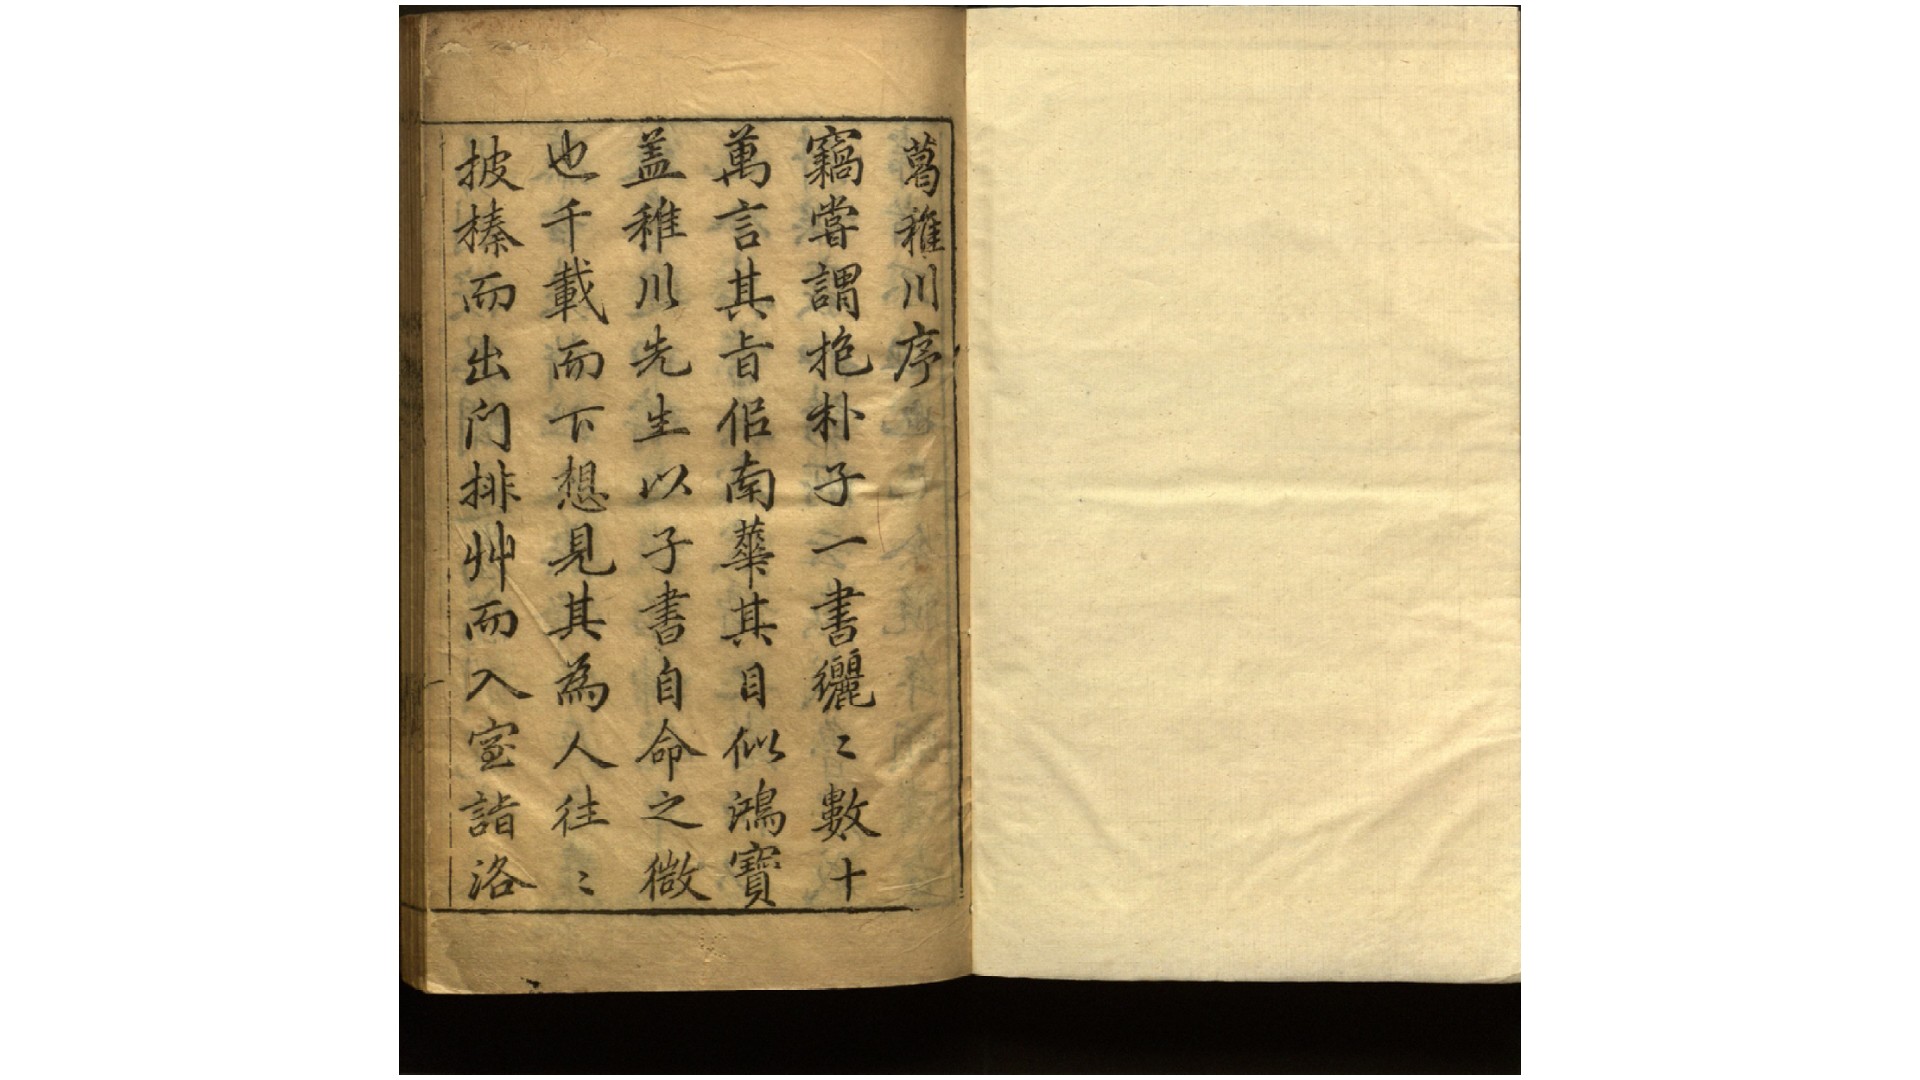 葛稚川序
竊嘗謂抱朴子一書纚〻數十
萬言其旨侣南華其目似鴻寶
盖稚川先生以子書自命之微
也千載而下想見其為人往〻
披榛而出门排艸而入室詣洛